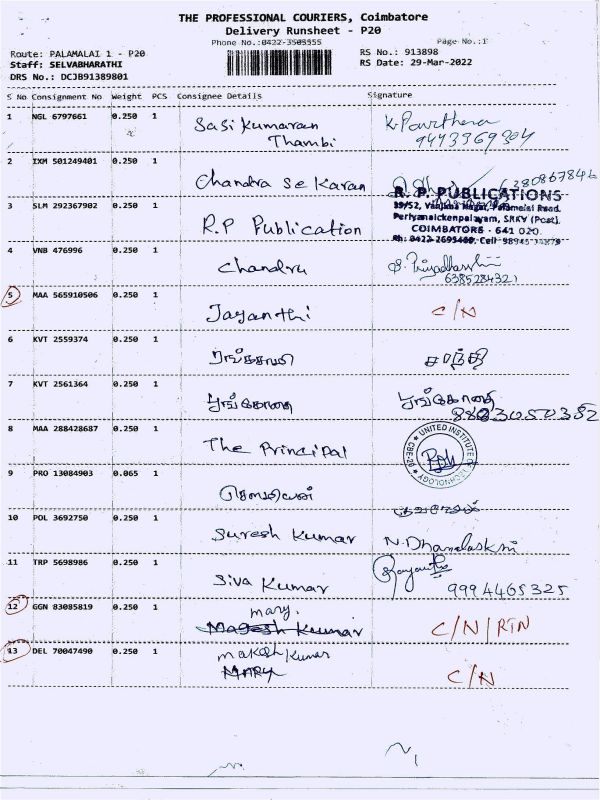 THE PROFESSIONAL COURIERS, Coimbatore
Delivery Runsheet - P20
Phone No.:0422-3503555 Page No.:1
Route: PALAMALAI 1 - P20 RS No.: 913898
Staff: SELVABHARATHI RS Date: 29-Mar-2022
DRS No.: DCJB91389801
S No Consignment No Weight PCS Consignee Details Signature
1 NGL 6797661 0.250 1 Sasi Kumaran
Thambi 9443969304
2 IXM 501249401 0.250 1 Chandra Se Karan
3 SLM 292367902 0.250 1 R.P Publication
R. P. PUBLICATIONS
Periyanaickenpalayam, SRKV (Post),
COIMBATORE - 641 020.
4 VNB 476996 0.250 1 Chandru S. Priyadharshini
6385284321
5 MAA 565910506 0.250 1 Jayanthi C/N
6 KVT 2559374 0.250 1
7 KVT 2561364 0.250 1 பூங்கோதை பூங்கோதை
8 MAA 288428687 0.250 1 The Principal
UNITED INSTITUTE OF TECHNOLOGY
9 PRO 13084903 0.065 1
10 POL 3692750 0.250 1 Suresh Kumar
11 TRP 5698986 0.250 1 Siva Kumar 9994465325
12 GGN 83085819 0.250 1 mary.
Magesh Kumar C/N/RTN
13 DEL 70047490 0.250 1 makesh Kumar
MARY C/N